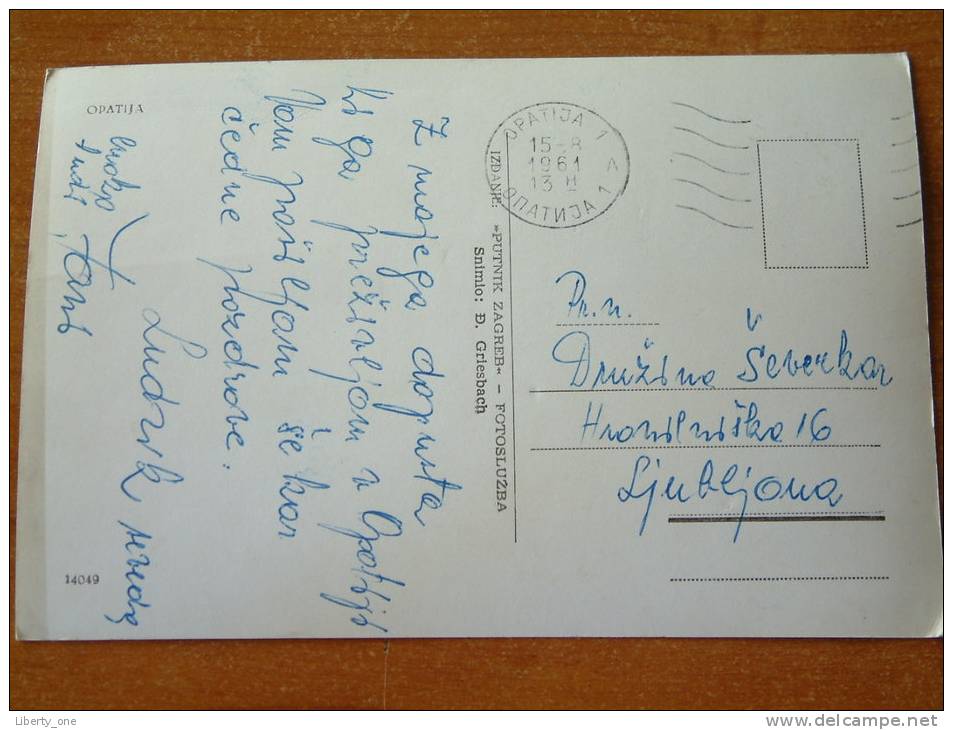 OPATIJA
Z mojega dopusta
ki ga preživljam v Opatiji
Vam pošiljam še kar
čedne pozdrave.
Ludvik
14049
IZDANJE: »PUTNIK ZAGREB« – FOTOSLUŽBA
Snimio: Đ. Griesbach
OPATIJA 1
15-8
1961
13 H
A
ОПАТИЈА 1
Pr. n.
Družina Severkar
Hranilniška 16
Ljubljana
Liberty_one
www.delcampe.net